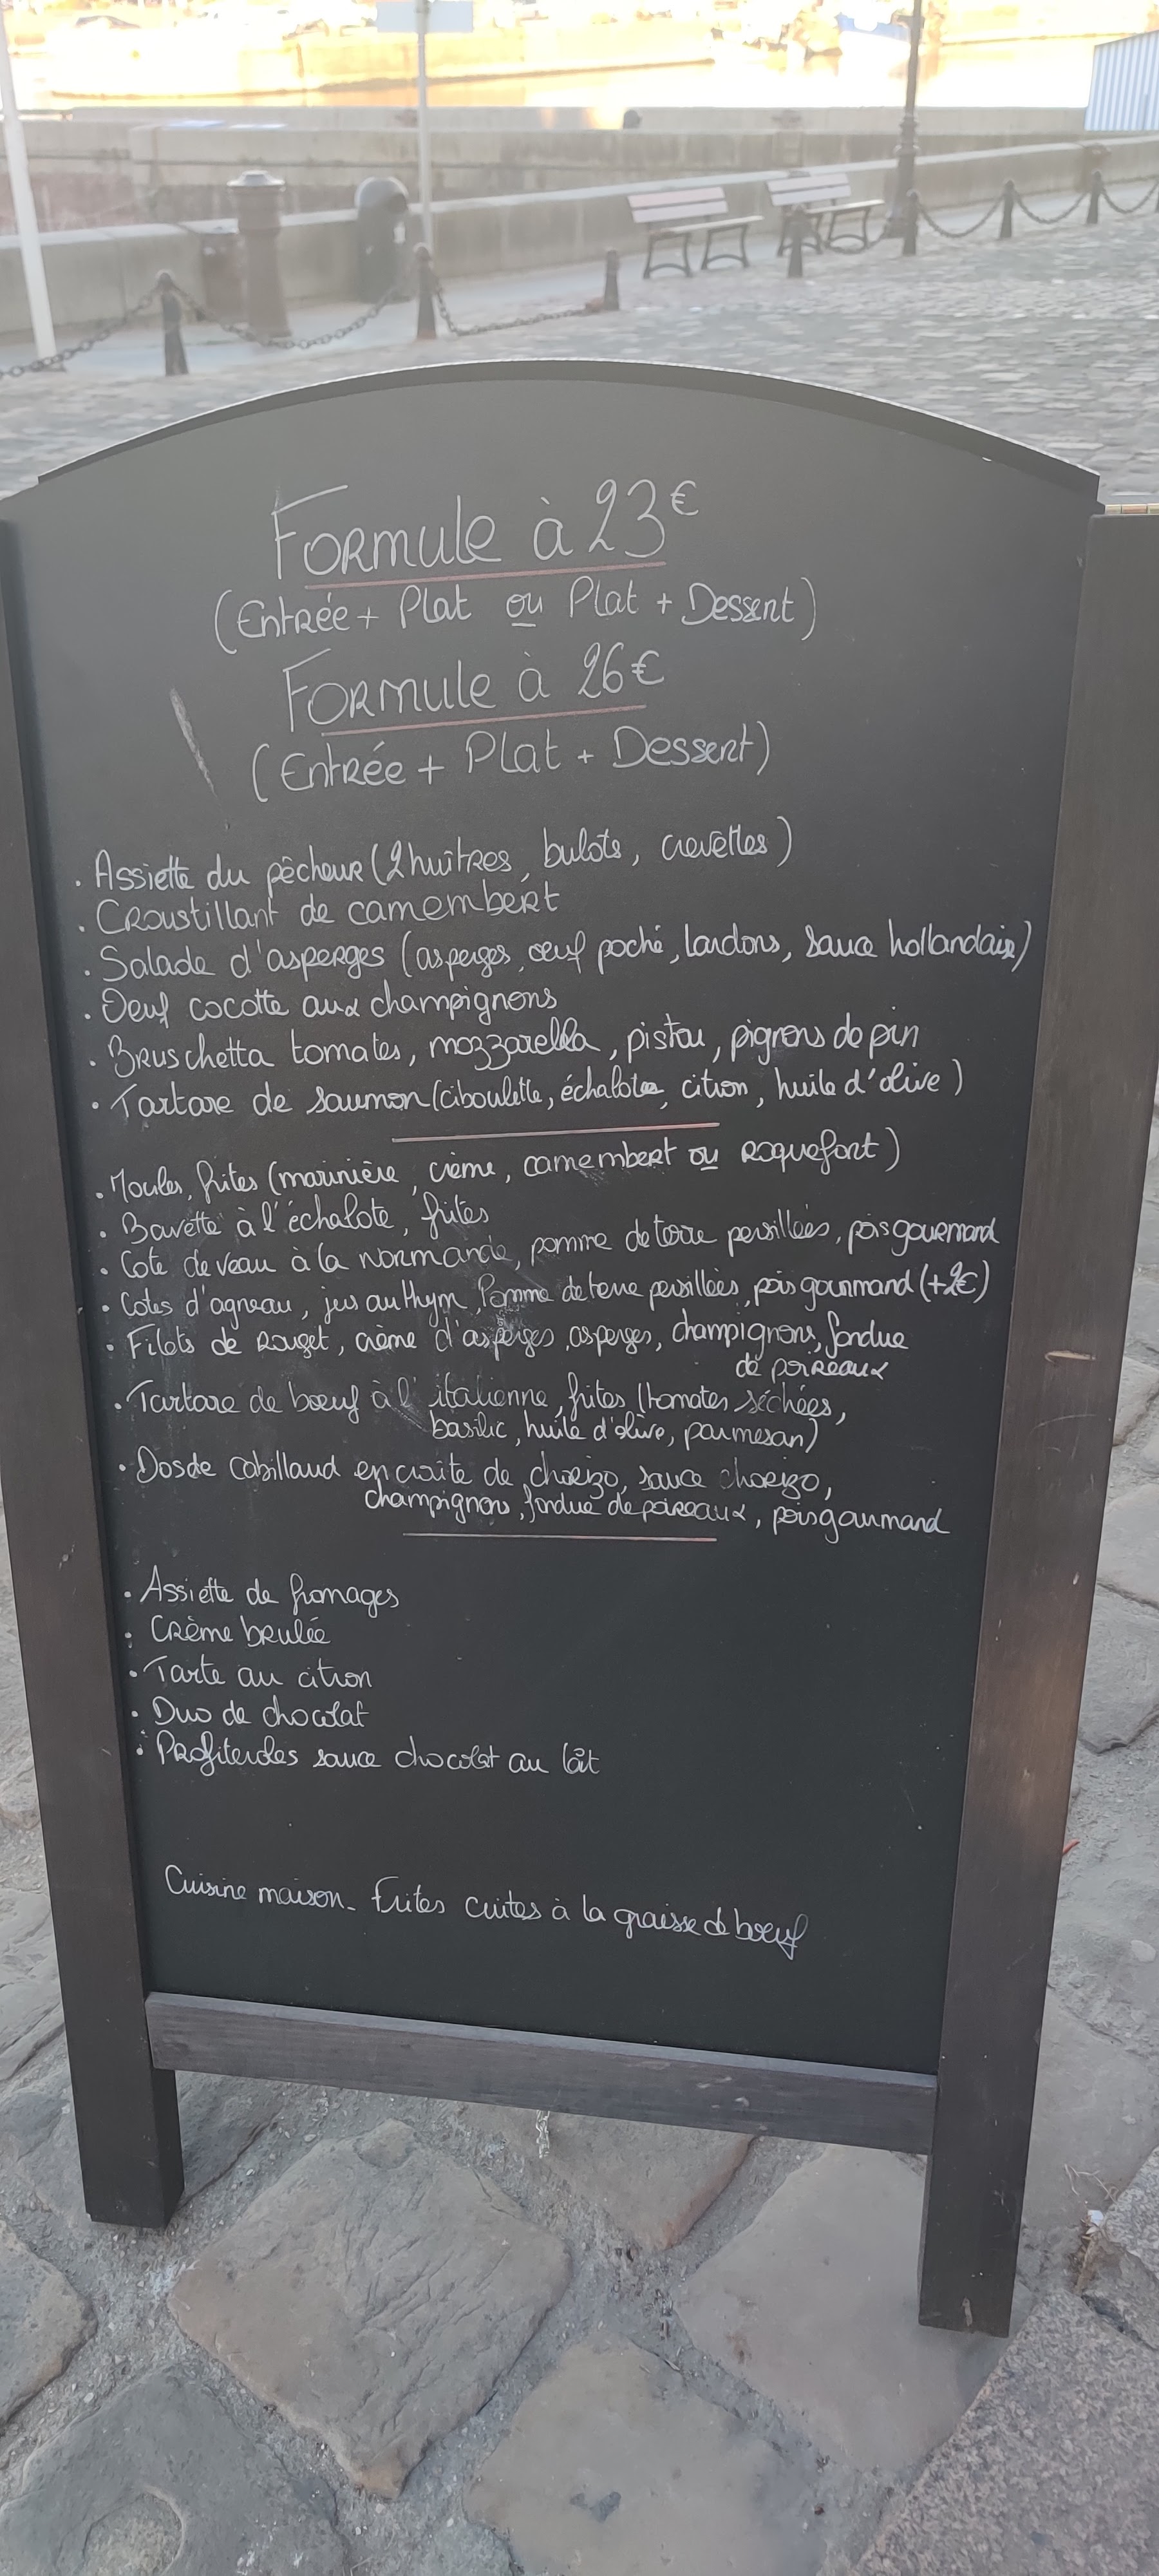 Formule à 23€
(Entrée + Plat ou Plat + Dessert)
Formule à 26€
(Entrée + Plat + Dessert)
. Assiette du pêcheur (2 huîtres, bulots, crevettes)
. Croustillant de camembert
. Salade d'asperges (asperges, oeuf poché, lardons, sauce hollandaise)
. Oeuf cocotte aux champignons
. Bruschetta tomates, mozzarella, pistou, pignons de pin
. Tartare de saumon (ciboulette, échalote, citron, huile d'olive)
. Moules, frites (marinière, crème, camembert ou roquefort)
. Bavette à l'échalote, frites
. Cote de veau à la normande, pomme de terre persillées, pois gourmand
. Cotes d'agneau, jus au thym, Pomme de terre persillées, pois gourmand (+2€)
. Filets de rouget, crème d'asperges, asperges, champignons, fondue
de poireaux
. Tartare de boeuf à l'italienne, frites (tomates séchées,
basilic, huile d'olive, parmesan)
. Dos de cabillaud en croûte de chorizo, sauce chorizo,
champignons, fondue de poireaux, pois gourmand
. Assiette de fromages
. Crème brulée
. Tarte au citron
. Duo de chocolat
. Profiteroles sauce chocolat au lait
Cuisine maison - Frites cuites à la graisse de boeuf